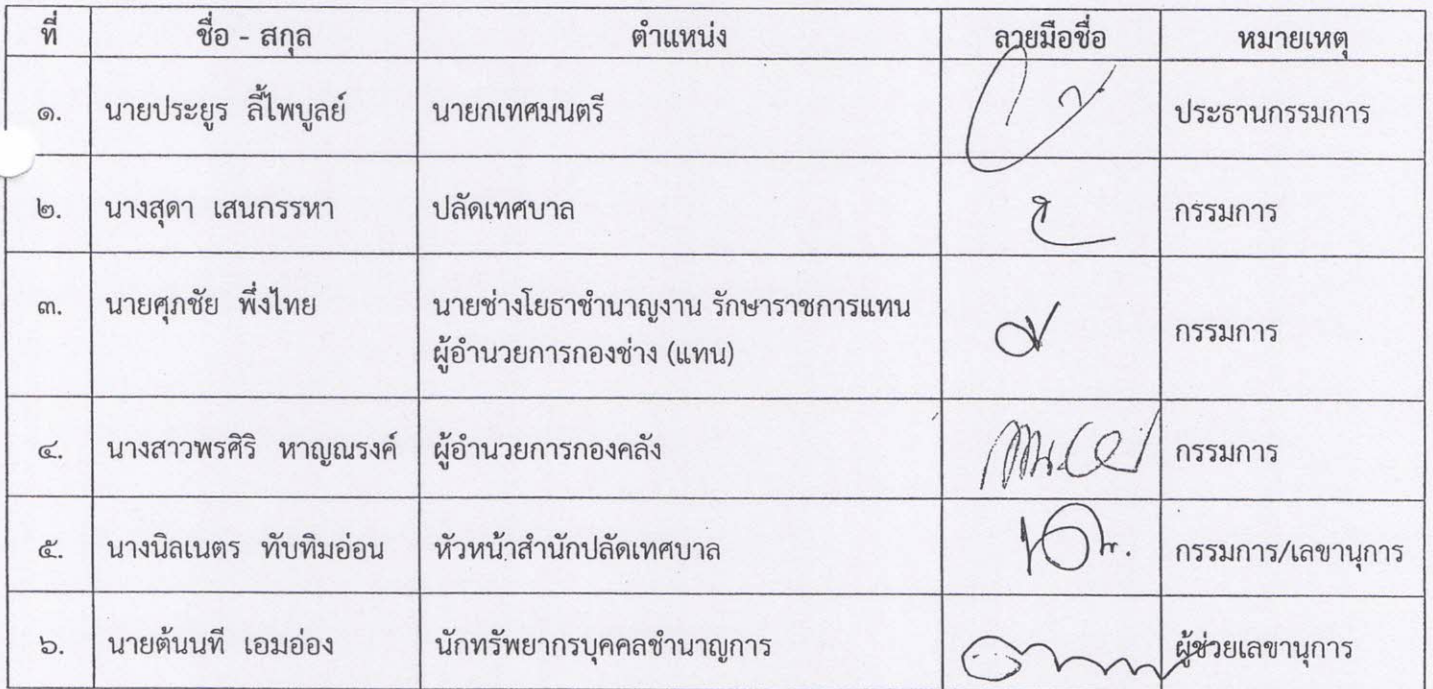 ที่ ชื่อ - สกุล ตำแหน่ง ลายมือชื่อ หมายเหตุ
๑. นายประยูร ลี้ไพบูลย์ นายกเทศมนตรี ประธานกรรมการ
๒. นางสุดา เสนกรรหา ปลัดเทศบาล กรรมการ
๓. นายศุภชัย พึ่งไทย นายช่างโยธาชำนาญงาน รักษาราชการแทน กรรมการ
ผู้อำนวยการกองช่าง (แทน)
๔. นางสาวพรศิริ หาญณรงค์ ผู้อำนวยการกองคลัง กรรมการ
๕. นางนิลเนตร ทับทิมอ่อน หัวหน้าสำนักปลัดเทศบาล กรรมการ/เลขานุการ
๖. นายต้นนที เอมอ่อง นักทรัพยากรบุคคลชำนาญการ ผู้ช่วยเลขานุการ